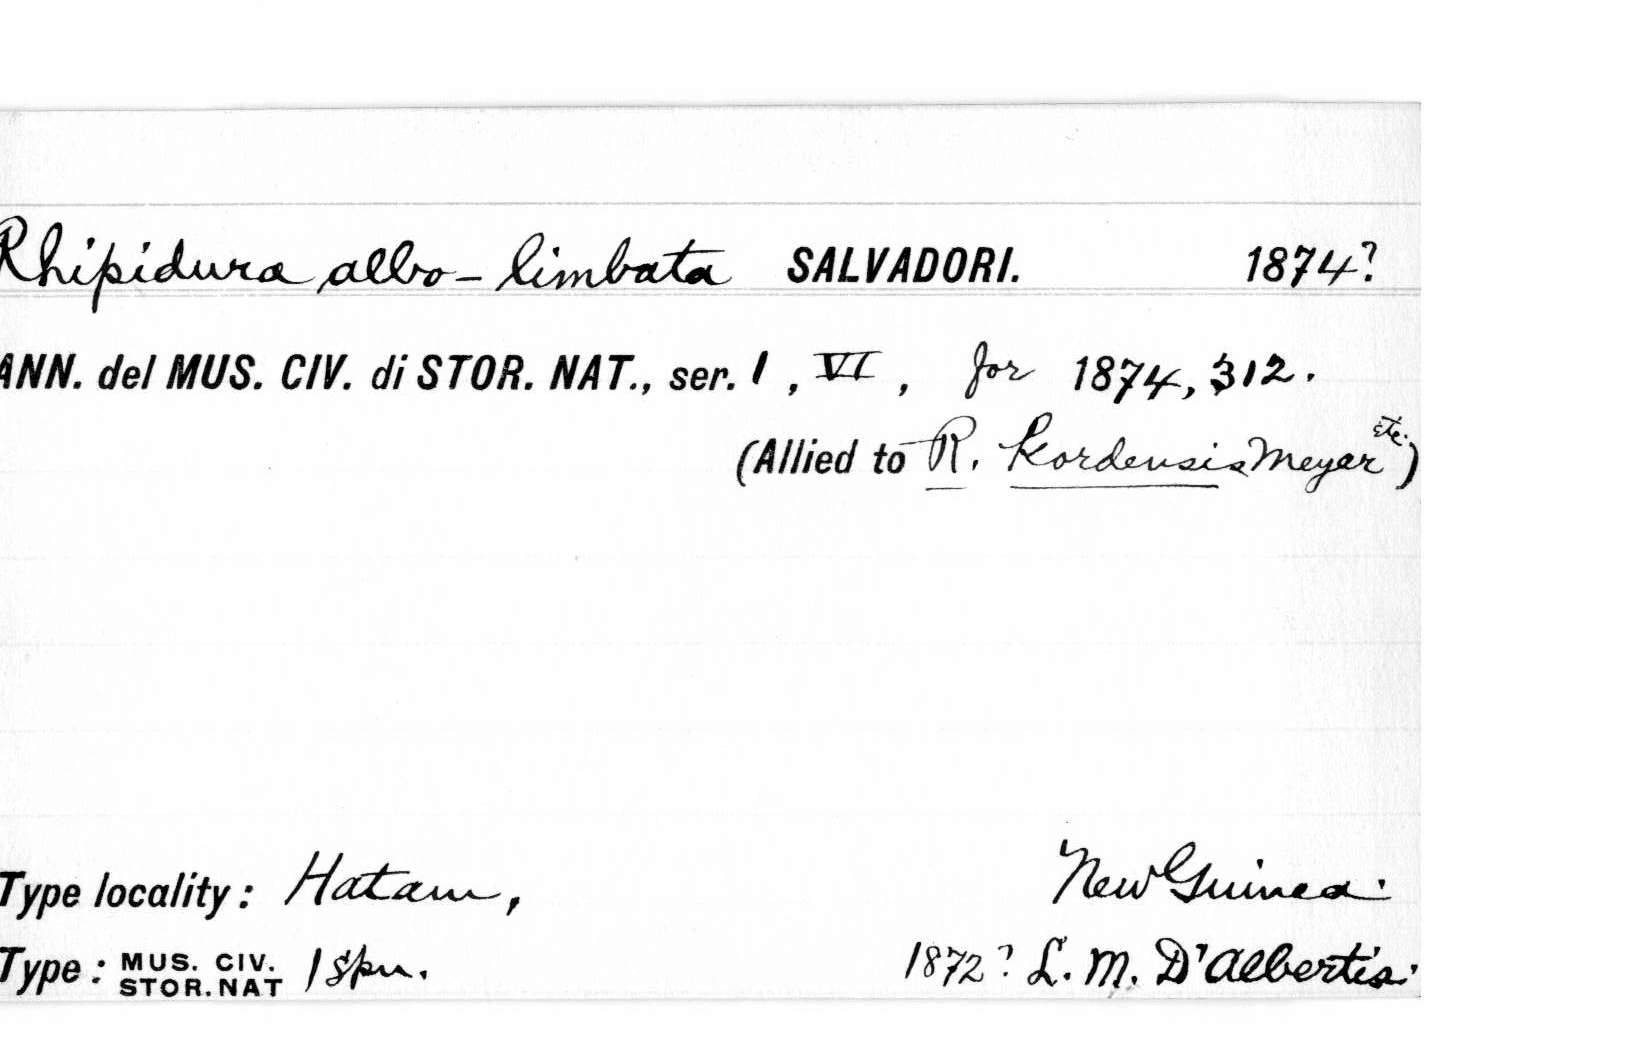 Rhipidura albo-limbata SALVADORI. 1874?
ANN. del MUS. CIV. di STOR. NAT., ser. 1, VI, for 1874, 312.
(Allied to R. Kordensis Meyer etc.)
Type locality: Hatam, New Guinea.
Type: MUS. CIV. STOR. NAT 1 spn. 1872? L. M. D'Albertis.